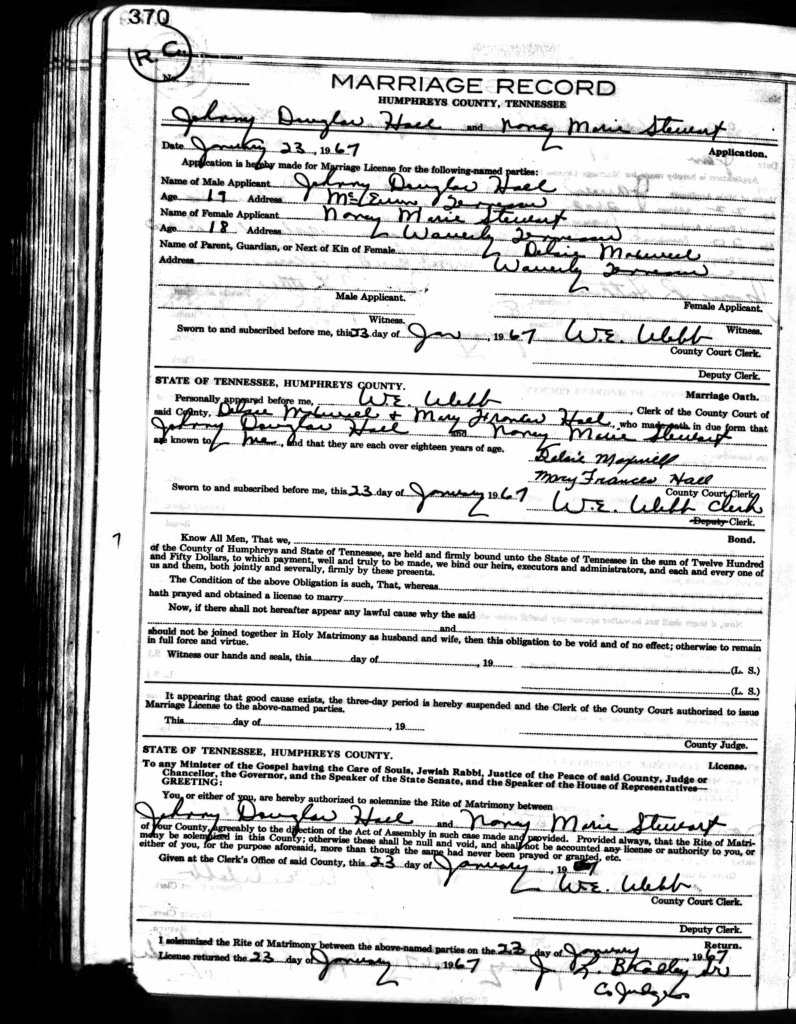 370
R. C.
No.
MARRIAGE RECORD
HUMPHREYS COUNTY, TENNESSEE
Johnny Douglas Hall and Nancy Marie Stewart
Date January 23, 1967 Application.
Application is hereby made for Marriage License for the following-named parties:
Name of Male Applicant Johnny Douglas Hall
Age 19 Address McEwen Tennessee
Name of Female Applicant Nancy Marie Stewart
Age 18 Address Waverly Tennessee
Name of Parent, Guardian, or Next of Kin of Female Delsie Maxwell
Address Waverly Tennessee
Male Applicant. Female Applicant.
Witness. Witness.
Sworn to and subscribed before me, this 23 day of Jan, 1967 W.E. Webb
County Court Clerk.
Deputy Clerk.
STATE OF TENNESSEE, HUMPHREYS COUNTY. Marriage Oath.
Personally appeared before me, W.E. Webb, Clerk of the County Court of
said County, Delsie Maxwell & Mary Frances Hall, who made oath in due form that
Johnny Douglas Hall and Nancy Marie Stewart
are known to me, and that they are each over eighteen years of age.
Delsie Maxwell
Mary Frances Hall
Sworn to and subscribed before me, this 23 day of January 1967 County Court Clerk
W.E. Webb Clerk
Deputy Clerk.
Bond.
Know All Men, That we,
of the County of Humphreys and State of Tennessee, are held and firmly bound unto the State of Tennessee in the sum of Twelve Hundred
and Fifty Dollars, to which payment, well and truly to be made, we bind our heirs, executors and administrators, and each and every one of
us and them, both jointly and severally, firmly by these presents.
The Condition of the above Obligation is such, That, whereas
hath prayed and obtained a license to marry
Now, if there shall not hereafter appear any lawful cause why the said
and
should not be joined together in Holy Matrimony as husband and wife, then this obligation to be void and of no effect; otherwise to remain
in full force and virtue.
Witness our hands and seals, this day of, 19 (L. S.)
(L. S.)
It appearing that good cause exists, the three-day period is hereby suspended and the Clerk of the County Court authorized to issue
Marriage License to the above-named parties.
This day of, 19
County Judge.
STATE OF TENNESSEE, HUMPHREYS COUNTY. License.
To any Minister of the Gospel having the Care of Souls, Jewish Rabbi, Justice of the Peace of said County, Judge or
Chancellor, the Governor, and the Speaker of the State Senate, and the Speaker of the House of Representatives—
GREETING:
You, or either of you, are hereby authorized to solemnize the Rite of Matrimony between
Johnny Douglas Hall and Nancy Marie Stewart
of your County, agreeably to the direction of the Act of Assembly in such case made and provided. Provided always, that the Rite of Matri-
mony be solemnized in this County; otherwise these shall be null and void, and shall not be accounted any license or authority to you, or
either of you, for the purpose aforesaid, more than though the same had never been prayed or granted, etc.
Given at the Clerk's Office of said County, this 23 day of January, 1967
W.E. Webb
County Court Clerk.
Deputy Clerk.
Return.
I solemnized the Rite of Matrimony between the above-named parties on the 23 day of January, 1967
License returned the 23 day of January, 1967 J. L. Bradley Sr
Co Judge